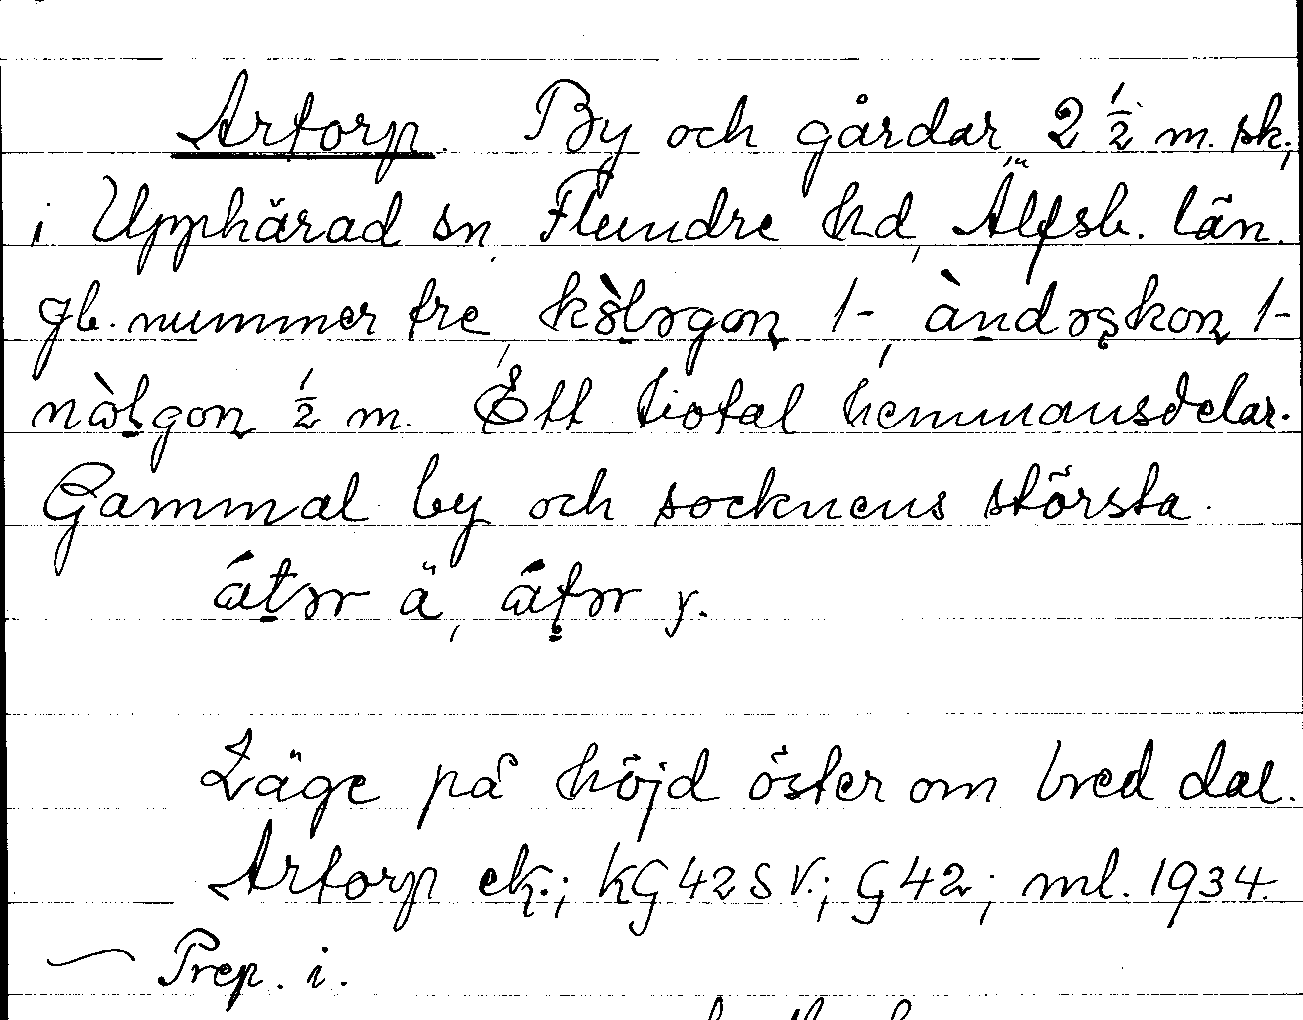 Artorp. By och gårdar 2 1/2 m. sk.,
i Upphärad sn, Flundre hd, Älfsb. län.
gb. nummer tre, 1-, 1-
1/2 m. Ett tiotal hemmansdelar.
Gammal by och socknens största.
ä, y.
Läge på höjd öster om bred dal.
Artorp ek.; KG 42 SV.; G 42; ml. 1934.
— Prep. i.